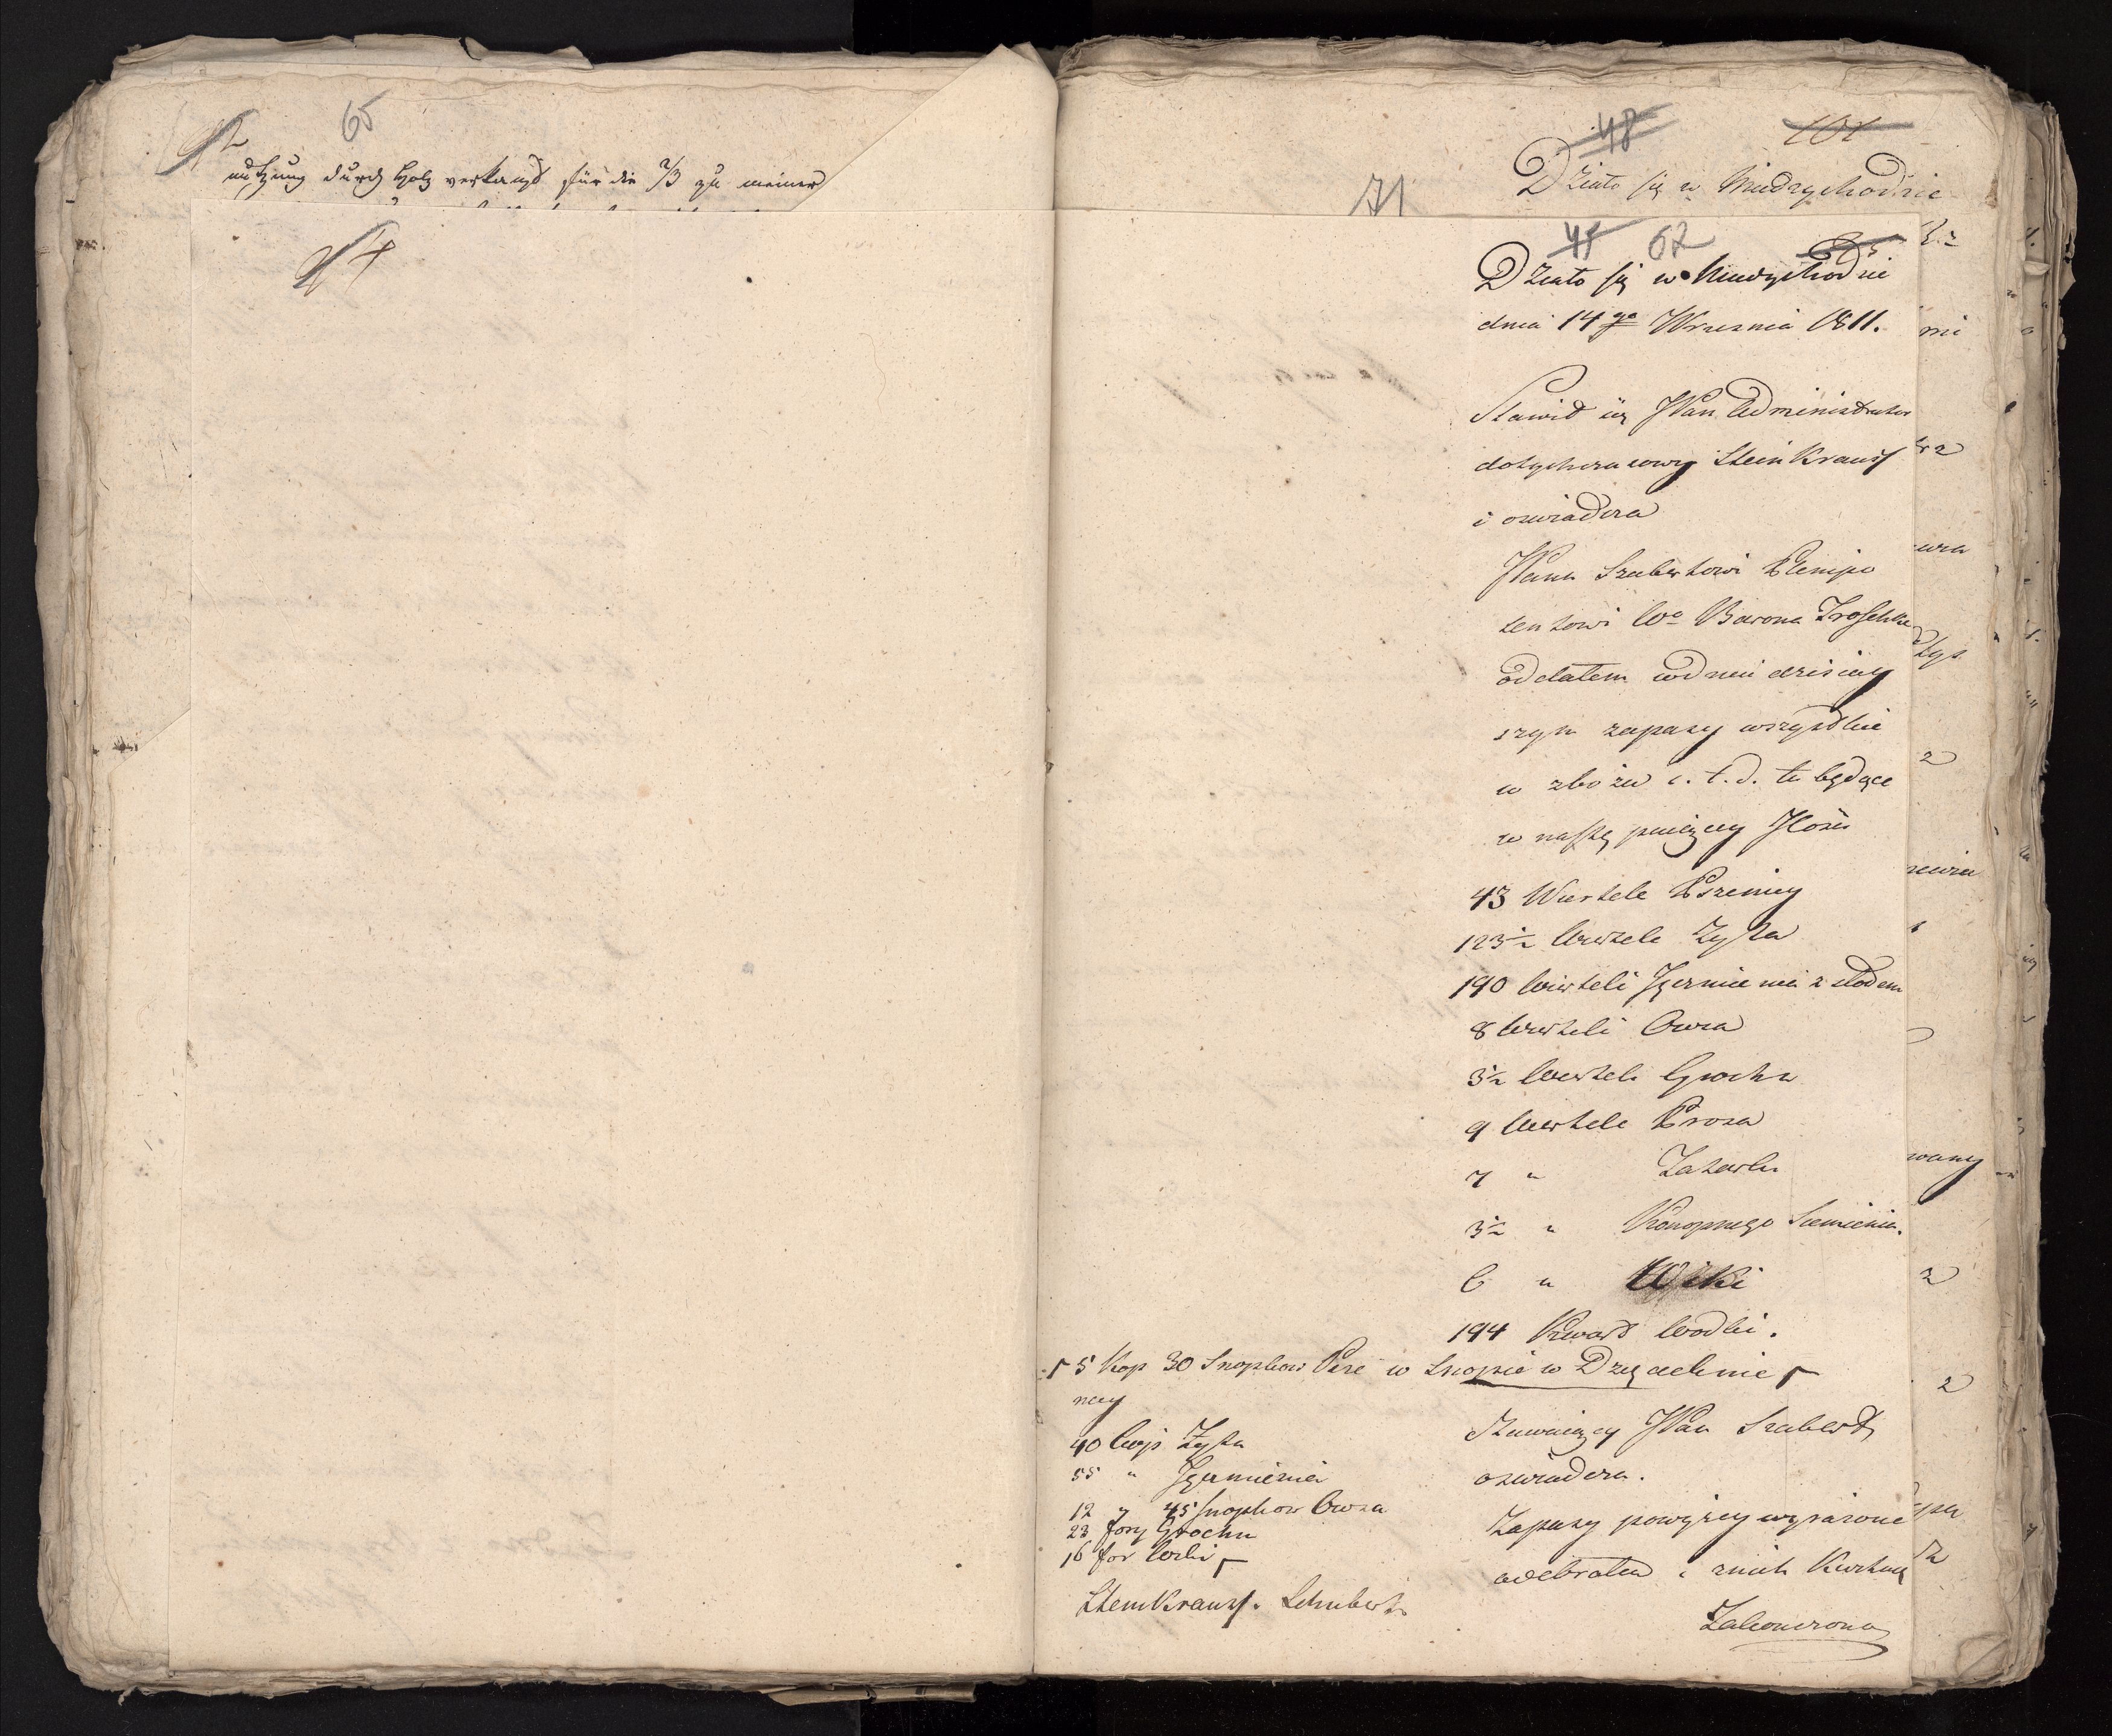 65
nutzung durch Holz verkauft für die 2/3 zu meiner
48
101
71
Działo się w Miedzychodzie
45 62
Działo się w Miedzychodzie
dnia 14go Wrzesnia 1811.
Stawił się JPan Administrator
dotychczasowy SteinKrauss
i oswiadcza
JPanu Szubertowi Plenipo
tentowi Wo Barona Troschke
oddałem w dniu dzisiey
szym zapasy wszystkie
w zbożu i. t. d. tu będące
w nastę puiący Jlosci
43 Wiertele Pszenicy
123½ Wiertele Zyta
190 Wierteli Jęczmienia z słodem
8 Wierteli Owsa
3½ Wierteli Grochu
9 Wiertele Prosa
7 " Tatarki
3½ " Konopnego Siemienia.
6 " Wiki
194 Kwart Wodki.
5 Kop 30 Snopkow Psze w Snopie w Dzięcielinie
nicy
40 Kop Zyta
55 " Jęczmienia
12 " 45 Snopkow Owsa
23 fory Grochu
16 for Wiki
SteinKrauss. Schubert
Stawaiący JPan Szubert
oswiadcza.
Zapasy powyżey wyrażone
odebrałem i z nich Kwituię
Zakonczono